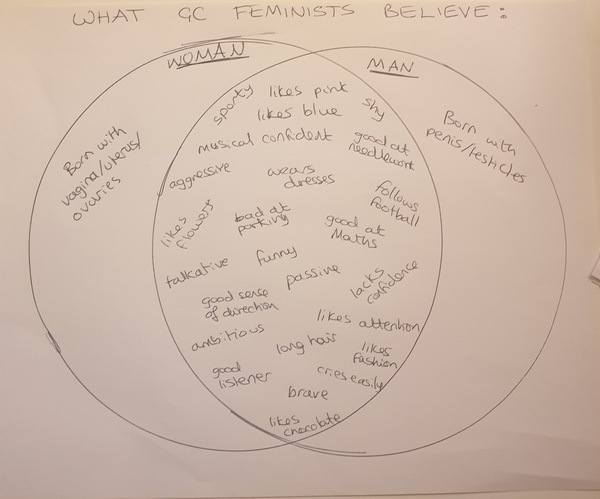 WHAT GC FEMINISTS BELIEVE:
WOMAN
MAN
Born with
vagina/uterus/
ovaries
sporty
likes pink
shy
likes blue
musical
confident
good at
needlework
aggressive
wears
dresses
follows
football
likes
flowers
bad at
parking
good at
Maths
talkative
funny
passive
lacks
confidence
good sense
of direction
likes attention
ambitious
long hair
likes
fashion
good
listener
cries easily
brave
likes
chocolate
Born with
penis/testicles